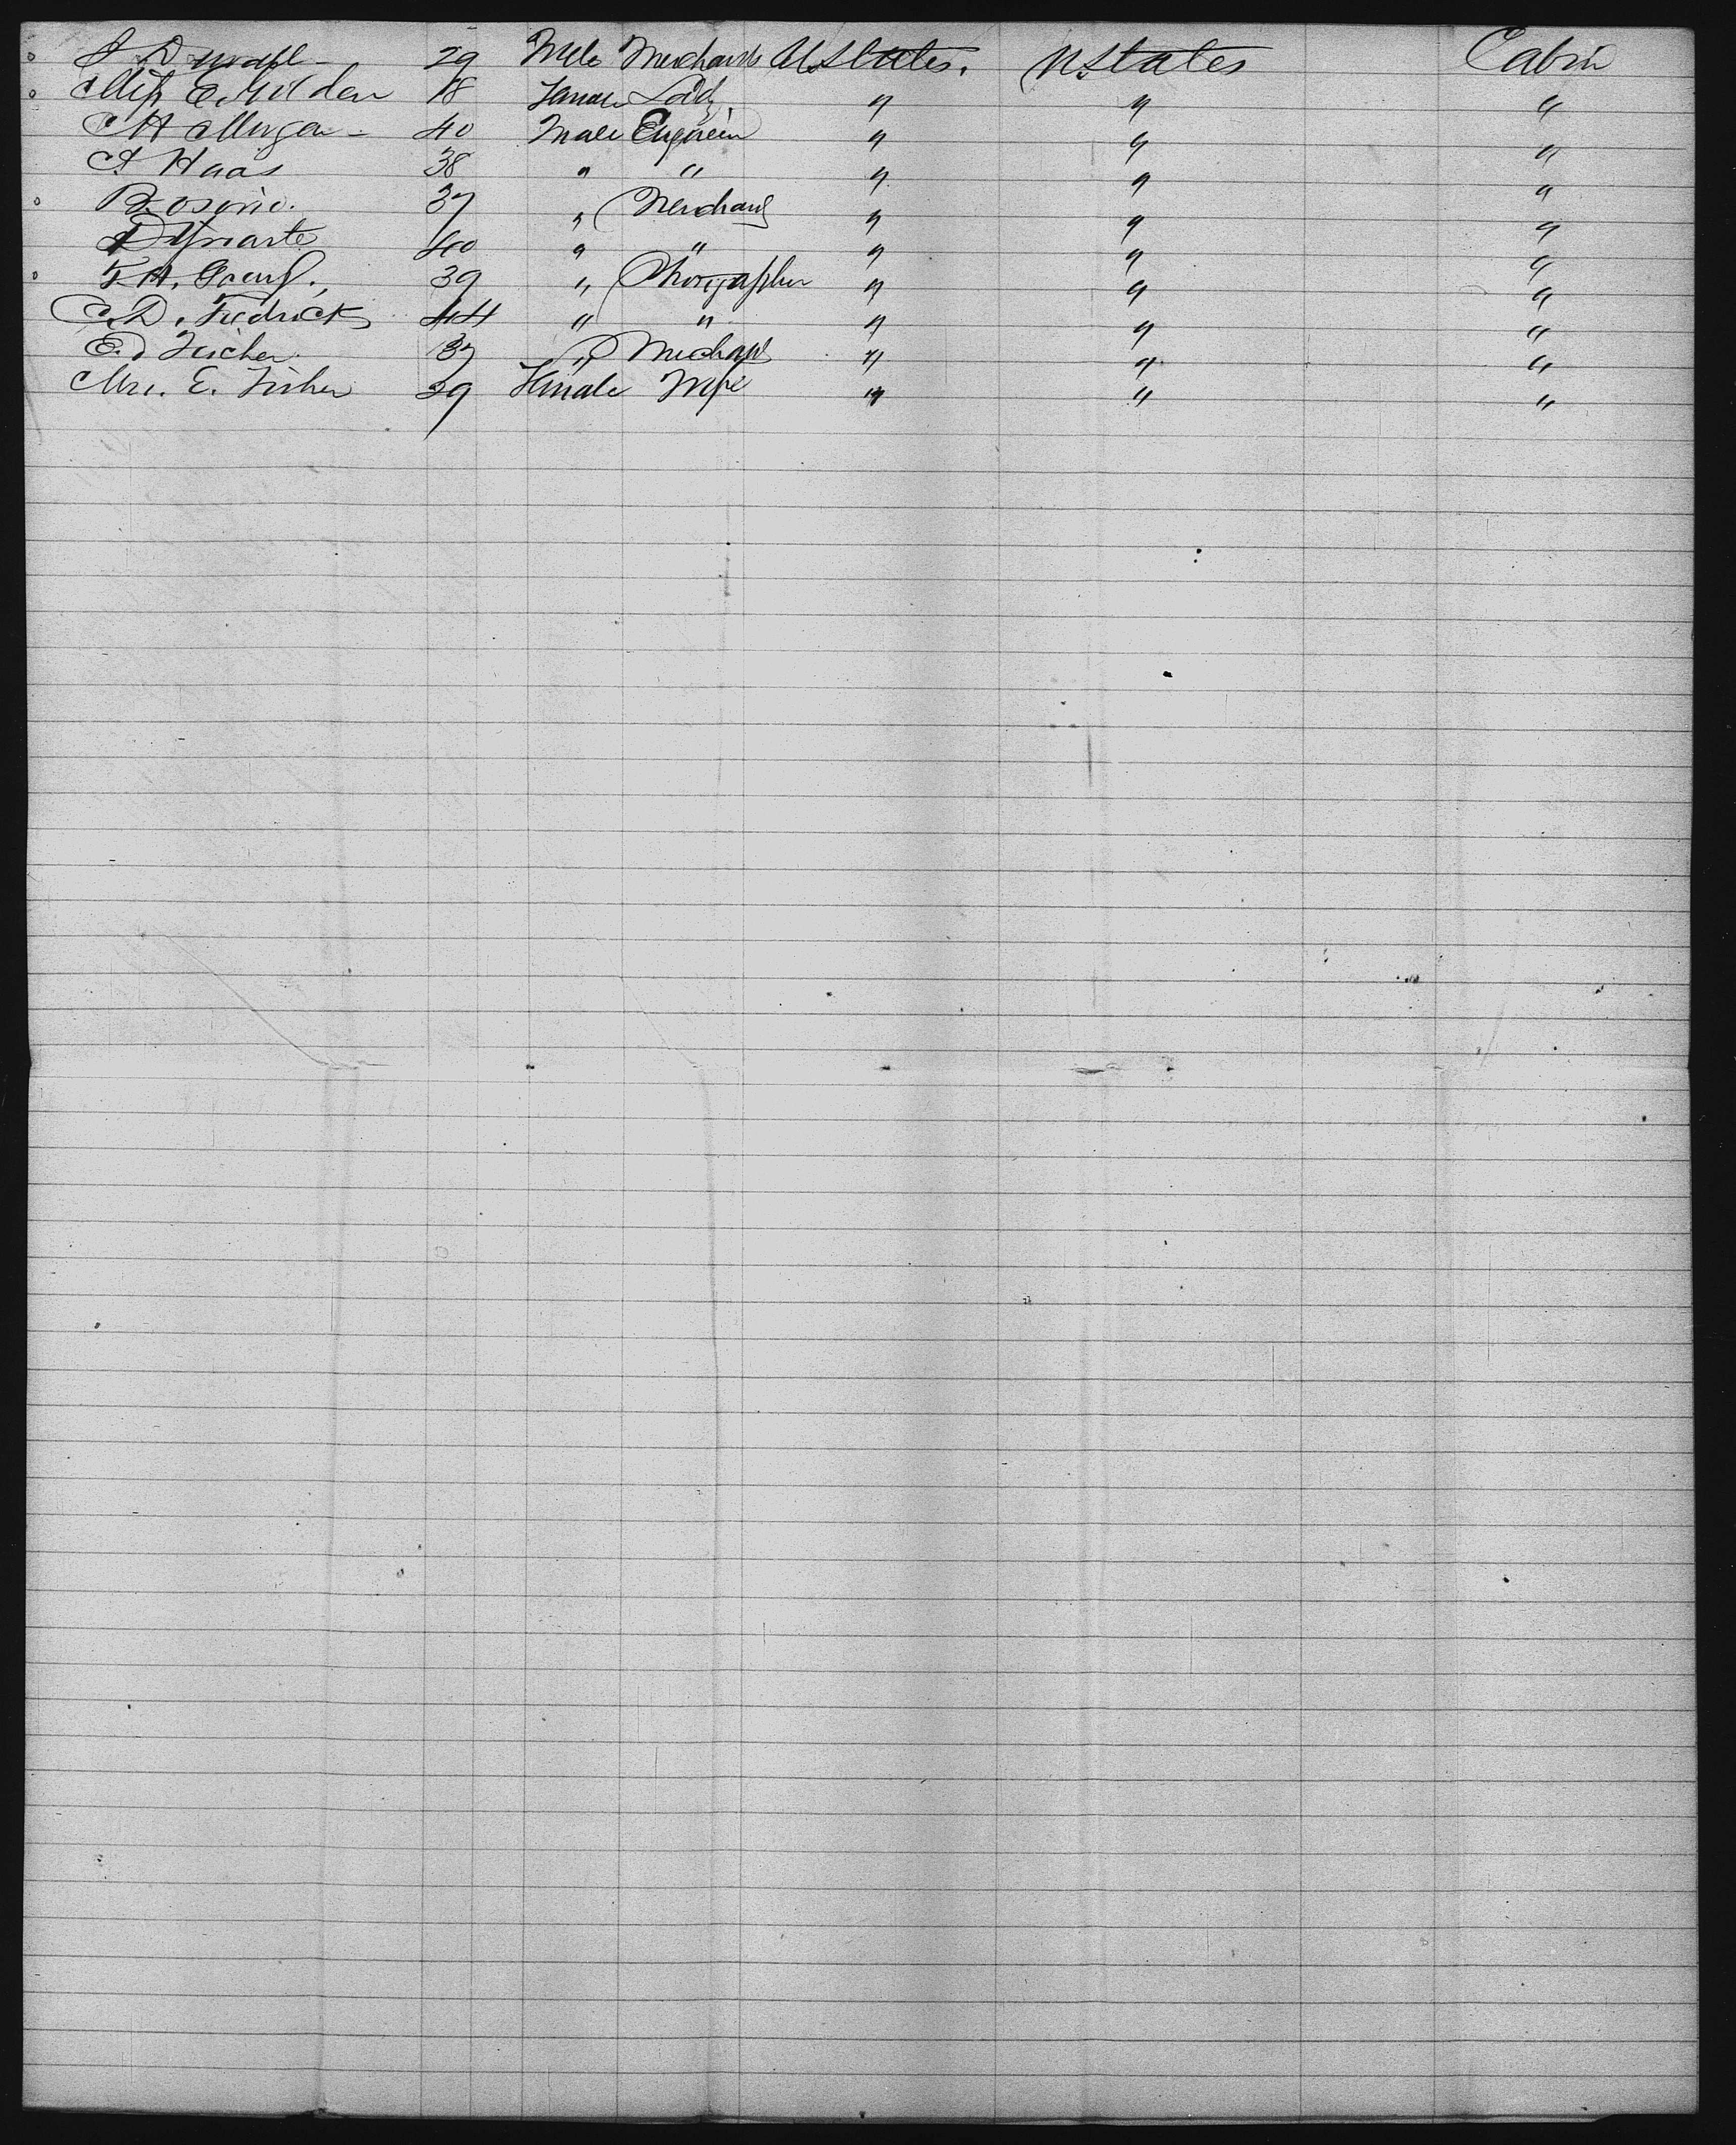 29 Male Merchant U. States. U. States Cabin
Miss E. 18 Female Lady " " "
40 Male Engineer " " "
A Haas 38 " " " " "
B. Osorio. 37 " Merchant " " "
D Yriarte 40 " " " " "
F. A. 39 " Photographer " " "
C. D. Fredricks 44 " " " " "
E. Fisher 37 " Merchant " " "
Mrs. E. Fisher 39 Female Wife " " "